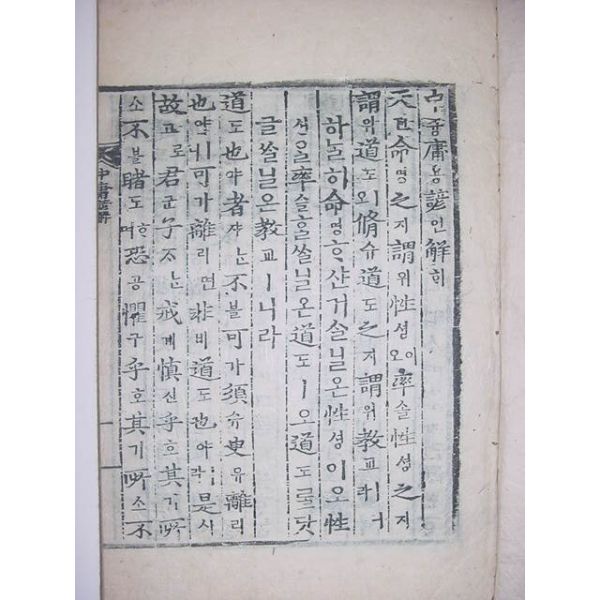 中즁庸용諺언解ᄒᆡ
天텬命명之지謂위性셩이오率솔性셩之지
謂위道도ㅣ오脩슈道도之지謂위敎교ㅣ니라
하ᄂᆞᆯ히命명ᄒᆞ샨거ᄉᆞᆯ닐온性셩이오性
셩을率솔ᄒᆞᆯᄊᆞᆯ닐온道도ㅣ오道도ᄅᆞᆯ닷
글ᄊᆞᆯ닐온敎교ㅣ니라
道도也야者쟈ᄂᆞᆫ不블可가須슈臾유離리
也야ㅣ니可가離리면非비道도也야ㅣ라是시
故고로君군子ᄌᆞᄂᆞᆫ戒계愼신乎호其기所
소不블睹도ᄒᆞ며恐공懼구乎호其기所소不
中庸諺解